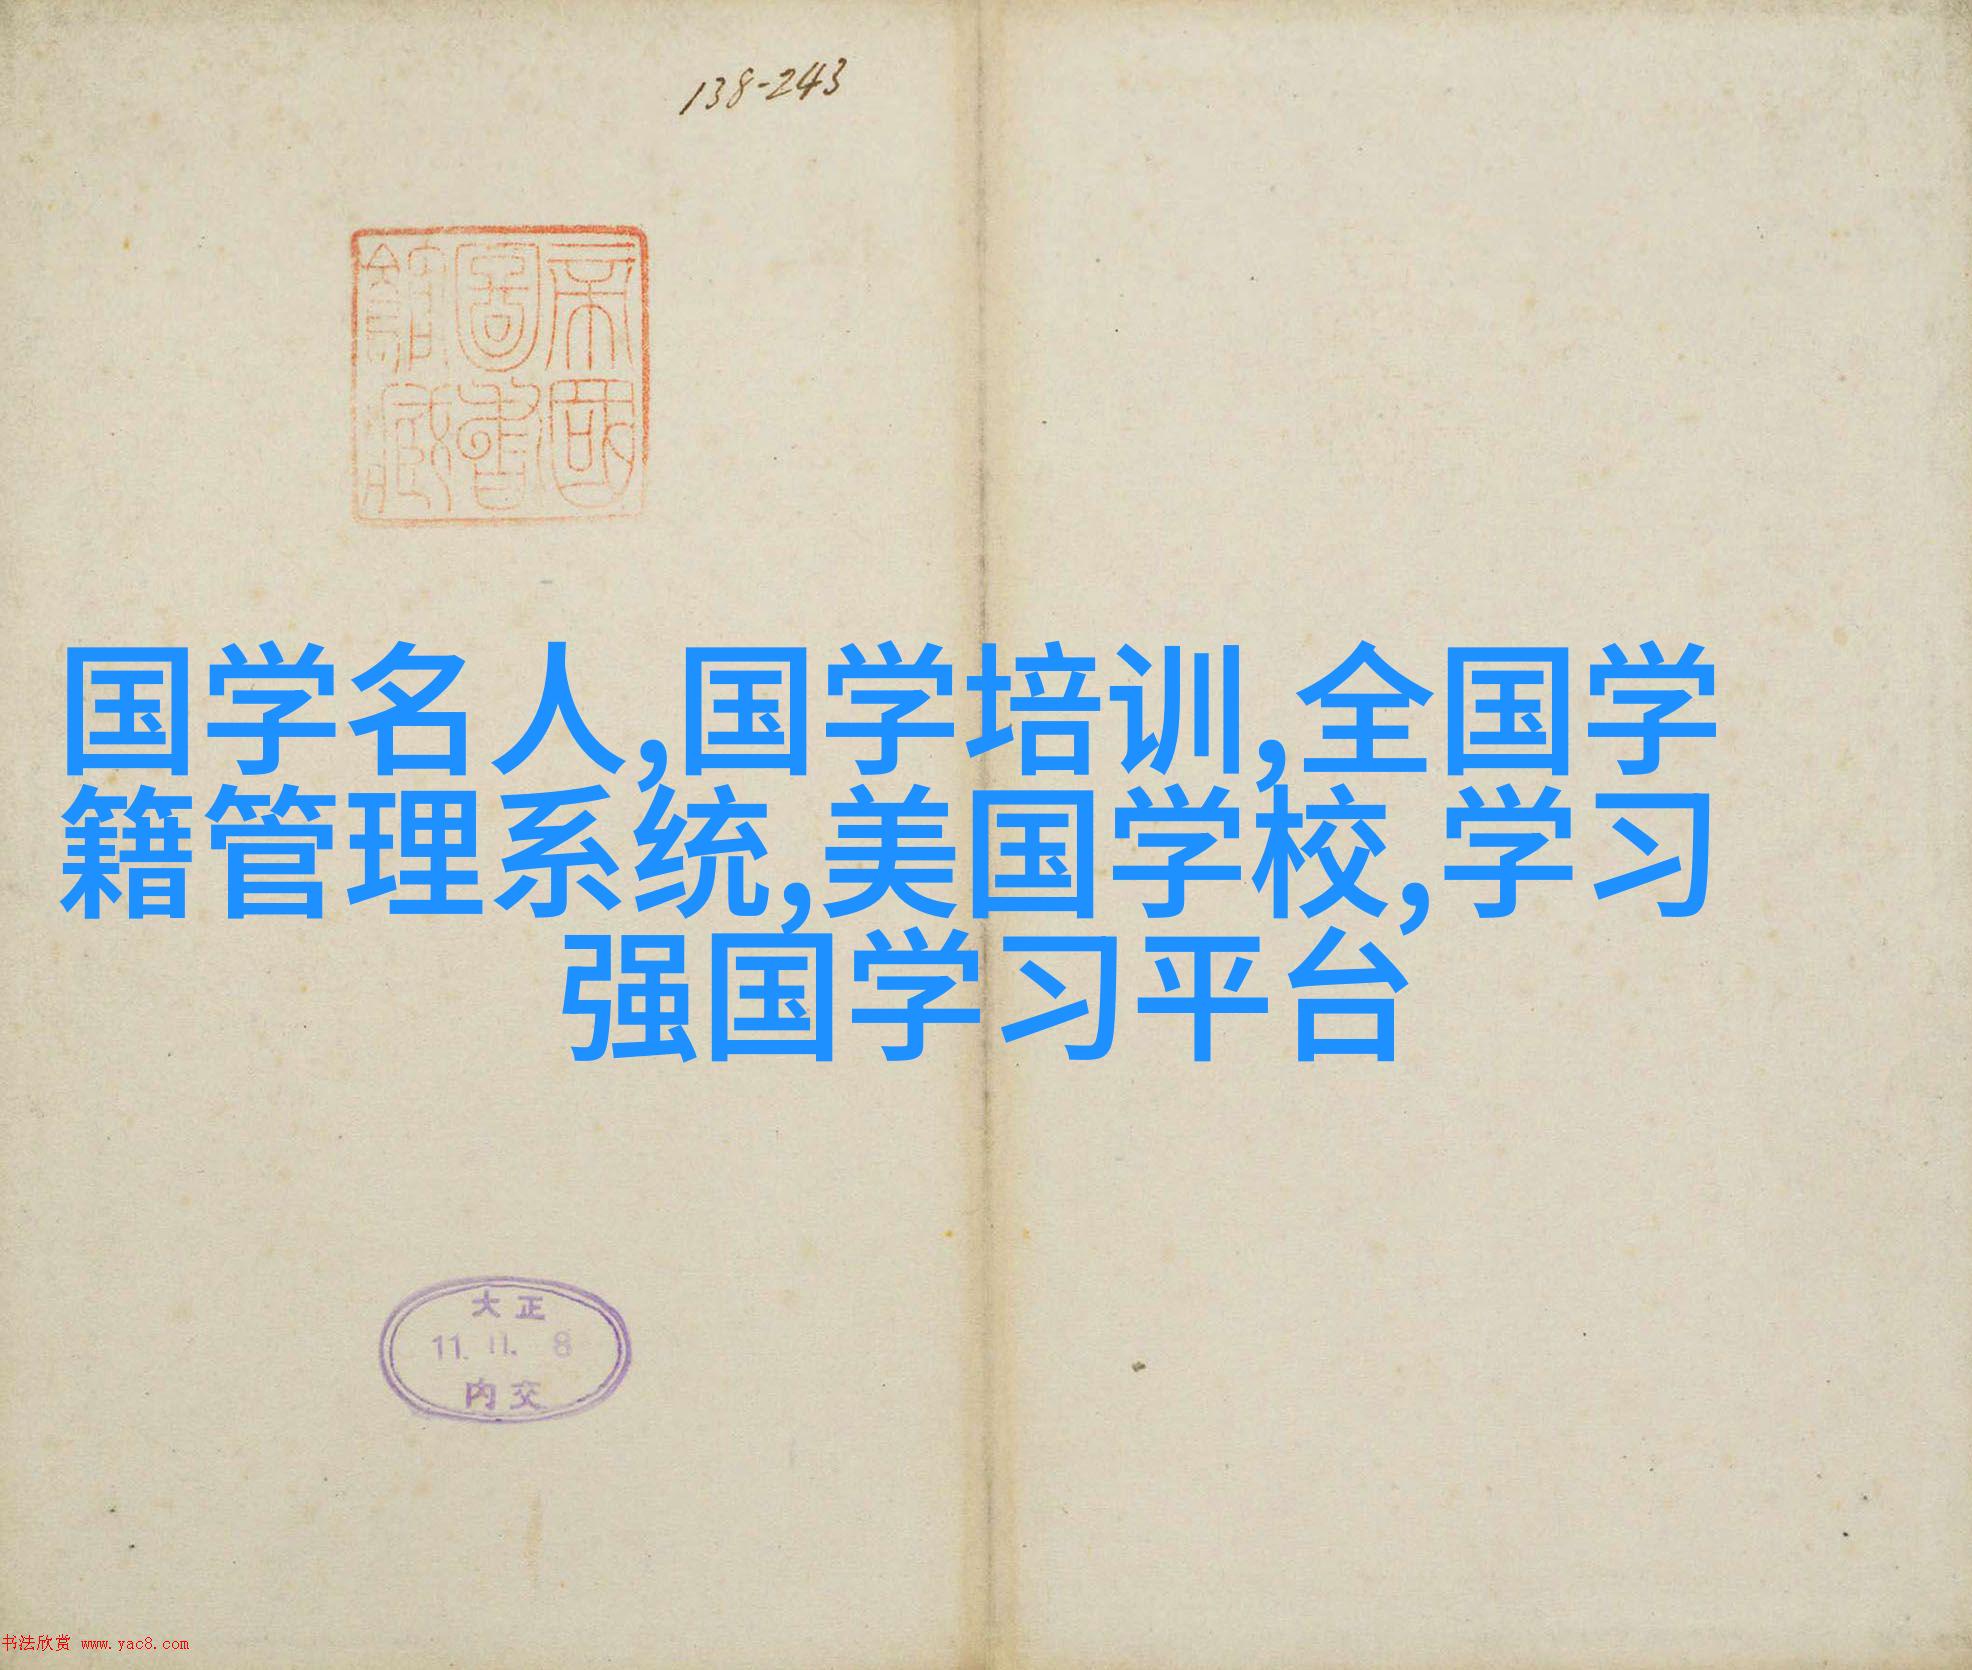 138-243
帝國
圖書
館藏
国学名人,国学培训,全国学
籍管理系统,美国学校,学习
强国学习平台
大正
11. 11. 8
内交
书法欣赏 www.yac8.com